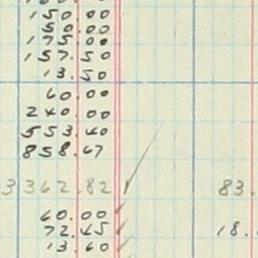 150.00
50.00
175.00
157.50
13.50
60.00
240.00
553.40
858.67
3362.82 83.
60.00
72.45 18.
13.60